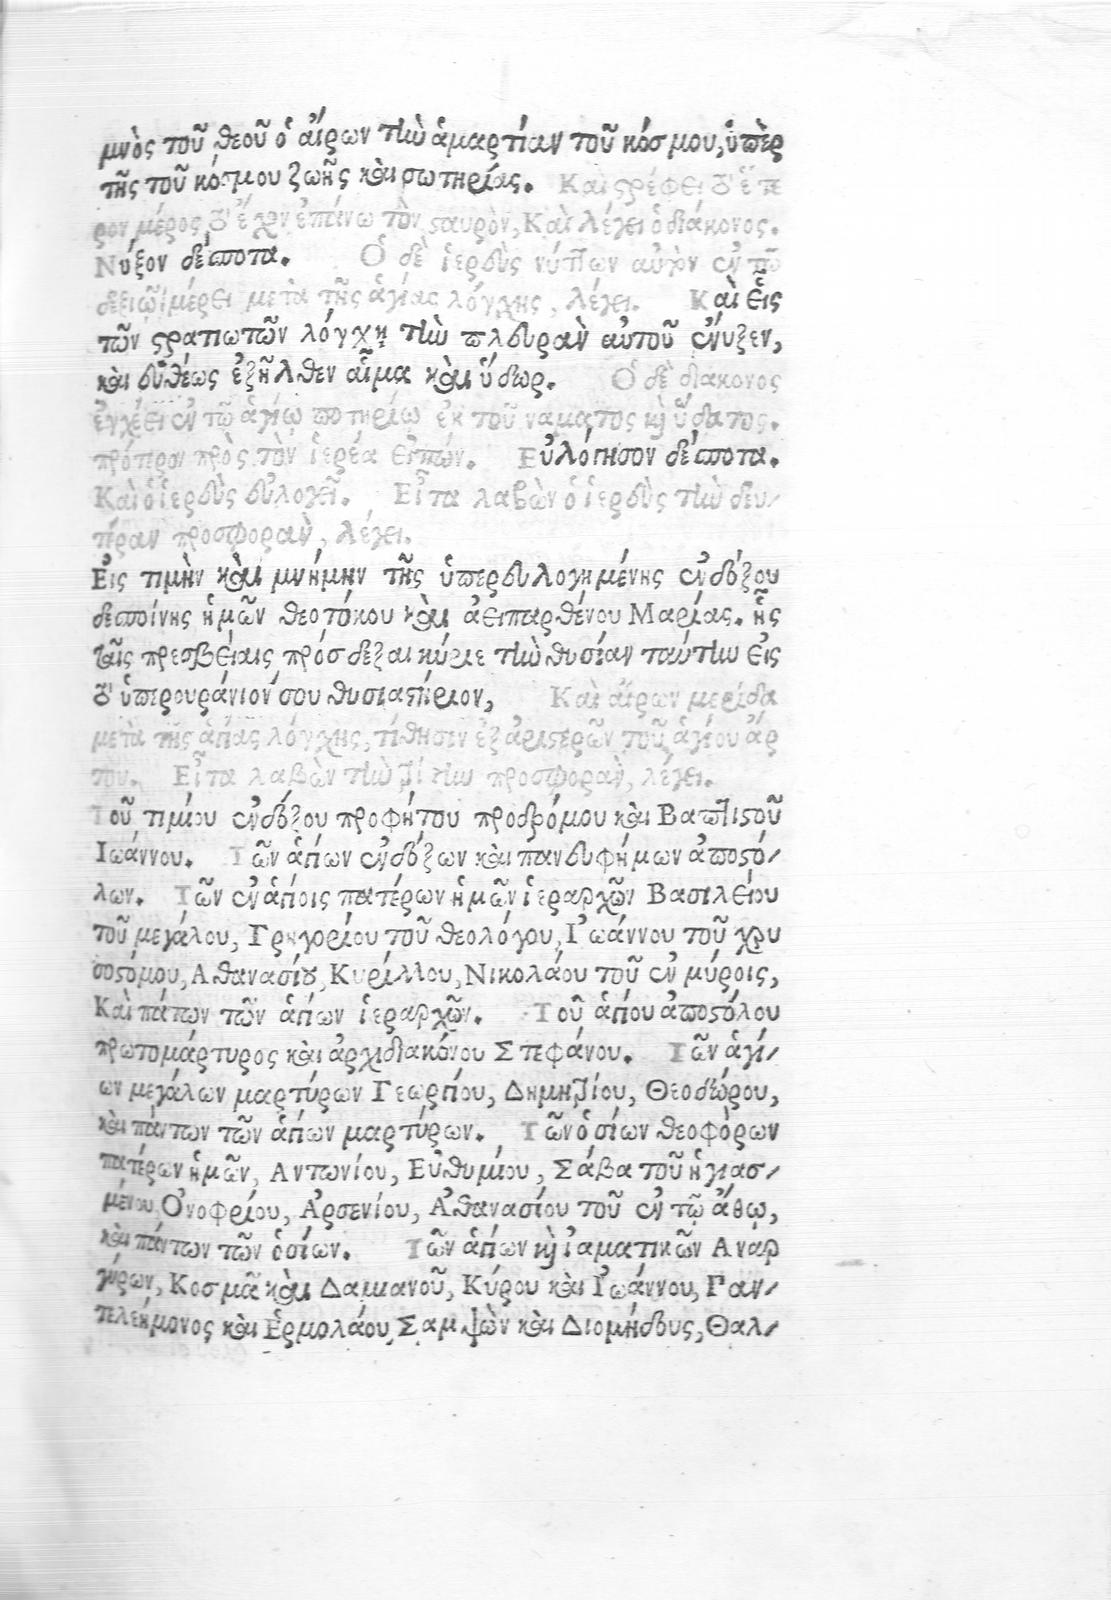 μνὸς τοῦ θεοῦ ὁ αἴρων τὴν ἁμαρτίαν τοῦ κόσμου, ὑπὲρ
τῆς τοῦ κόσμου ζωῆς καὶ σωτηρίας. Καὶ στρέφει τὸ ἕτε
ρον μέρος τὸ ἔχον ἐπάνω τὸν σταυρὸν, Καὶ λέγει ὁ διάκονος.
Νύξον δέσποτα. Ὁ δὲ ἱερεὺς νύττων αὐτὸν ἐν τῷ
δεξιῷ μέρει μετὰ τῆς ἁγίας λόγχης, λέγει. Καὶ εἷς
τῶν στρατιωτῶν λόγχῃ τὴν πλευρὰν αὐτοῦ ἔνυξεν,
καὶ εὐθέως ἐξῆλθεν αἷμα καὶ ὕδωρ. Ὁ δὲ διάκονος
ἐγχέει ἐν τῷ ἁγίῳ ποτηρίῳ ἐκ τοῦ νάματος καὶ ὕδατος.
πρότερον πρὸς τὸν ἱερέα εἰπών. Εὐλόγησον δέσποτα.
Καὶ ὁ ἱερεὺς εὐλογεῖ. Εἶτα λαβὼν ὁ ἱερεὺς τὴν δευ/
τέραν προσφορὰν, λέγει.
Εἰς τιμὴν καὶ μνήμην τῆς ὑπερευλογημένης ἐνδόξου
δεσποίνης ἡμῶν θεοτόκου καὶ ἀειπαρθένου Μαρίας. ἧς
ταῖς πρεσβείαις πρόσδεξαι κύριε τὴν θυσίαν ταύτην εἰς
τὸ ὑπερουράνιόν σου θυσιαστήριον, Καὶ αἴρων μερίδα
μετὰ τῆς ἁγίας λόγχης, τίθησιν ἐξ ἀριστερῶν τοῦ ἁγίου ἄρ
του. Εἶτα λαβὼν τὴν τρίτην προσφορὰν, λέγει.
Τοῦ τιμίου ἐνδόξου προφήτου προδρόμου καὶ Βαπτιστοῦ
Ἰωάννου. Τῶν ἁγίων ἐνδόξων καὶ πανευφήμων ἀποστό/
λων. Τῶν ἐν ἁγίοις πατέρων ἡμῶν ἱεραρχῶν Βασιλείου
τοῦ μεγάλου, Γρηγορίου τοῦ θεολόγου, Ἰωάννου τοῦ χρυ
σοστόμου, Ἀθανασίου, Κυρίλλου, Νικολάου τοῦ ἐν μύροις,
Καὶ πάντων τῶν ἁγίων ἱεραρχῶν. Τοῦ ἁγίου ἀποστόλου
πρωτομάρτυρος καὶ ἀρχιδιακόνου Στεφάνου. Τῶν ἁγί/
ων μεγάλων μαρτύρων Γεωργίου, Δημητρίου, Θεοδώρου,
καὶ πάντων τῶν ἁγίων μαρτύρων. Τῶν ὁσίων θεοφόρων
πατέρων ἡμῶν, Αντωνίου, Εὐθυμίου, Σάβα τοῦ ἡγιασ/
μένου, Ὀνοφρίου, Ἀρσενίου, Ἀθανασίου τοῦ ἐν τῷ ἄθῳ,
καὶ πάντων τῶν ὁσίων. Τῶν ἁγίων καὶ ἰαματικῶν Αναρ
γύρων, Κοσμᾶ καὶ Δαμιανοῦ, Κύρου καὶ Ἰωάννου, Παν/
τελεήμονος καὶ Ἑρμολάου, Σαμψὼν καὶ Διομήδους, Θαλ/